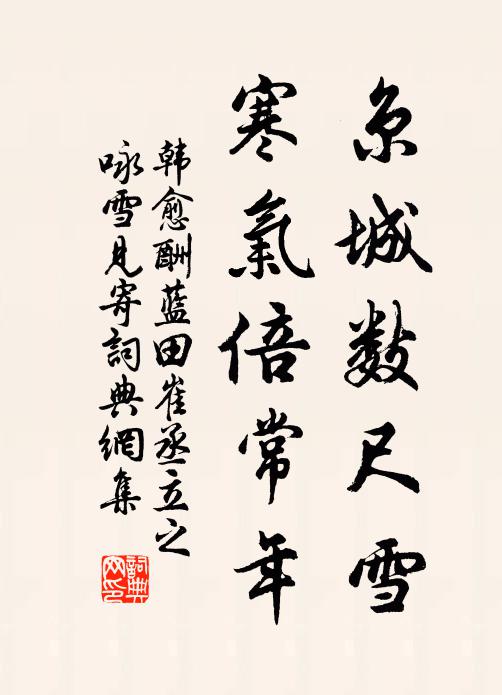 京城数尺雪
寒氣倍常年
韩愈酬蓝田崔丞立之
咏雪見寄詞典網集
詞典
网印